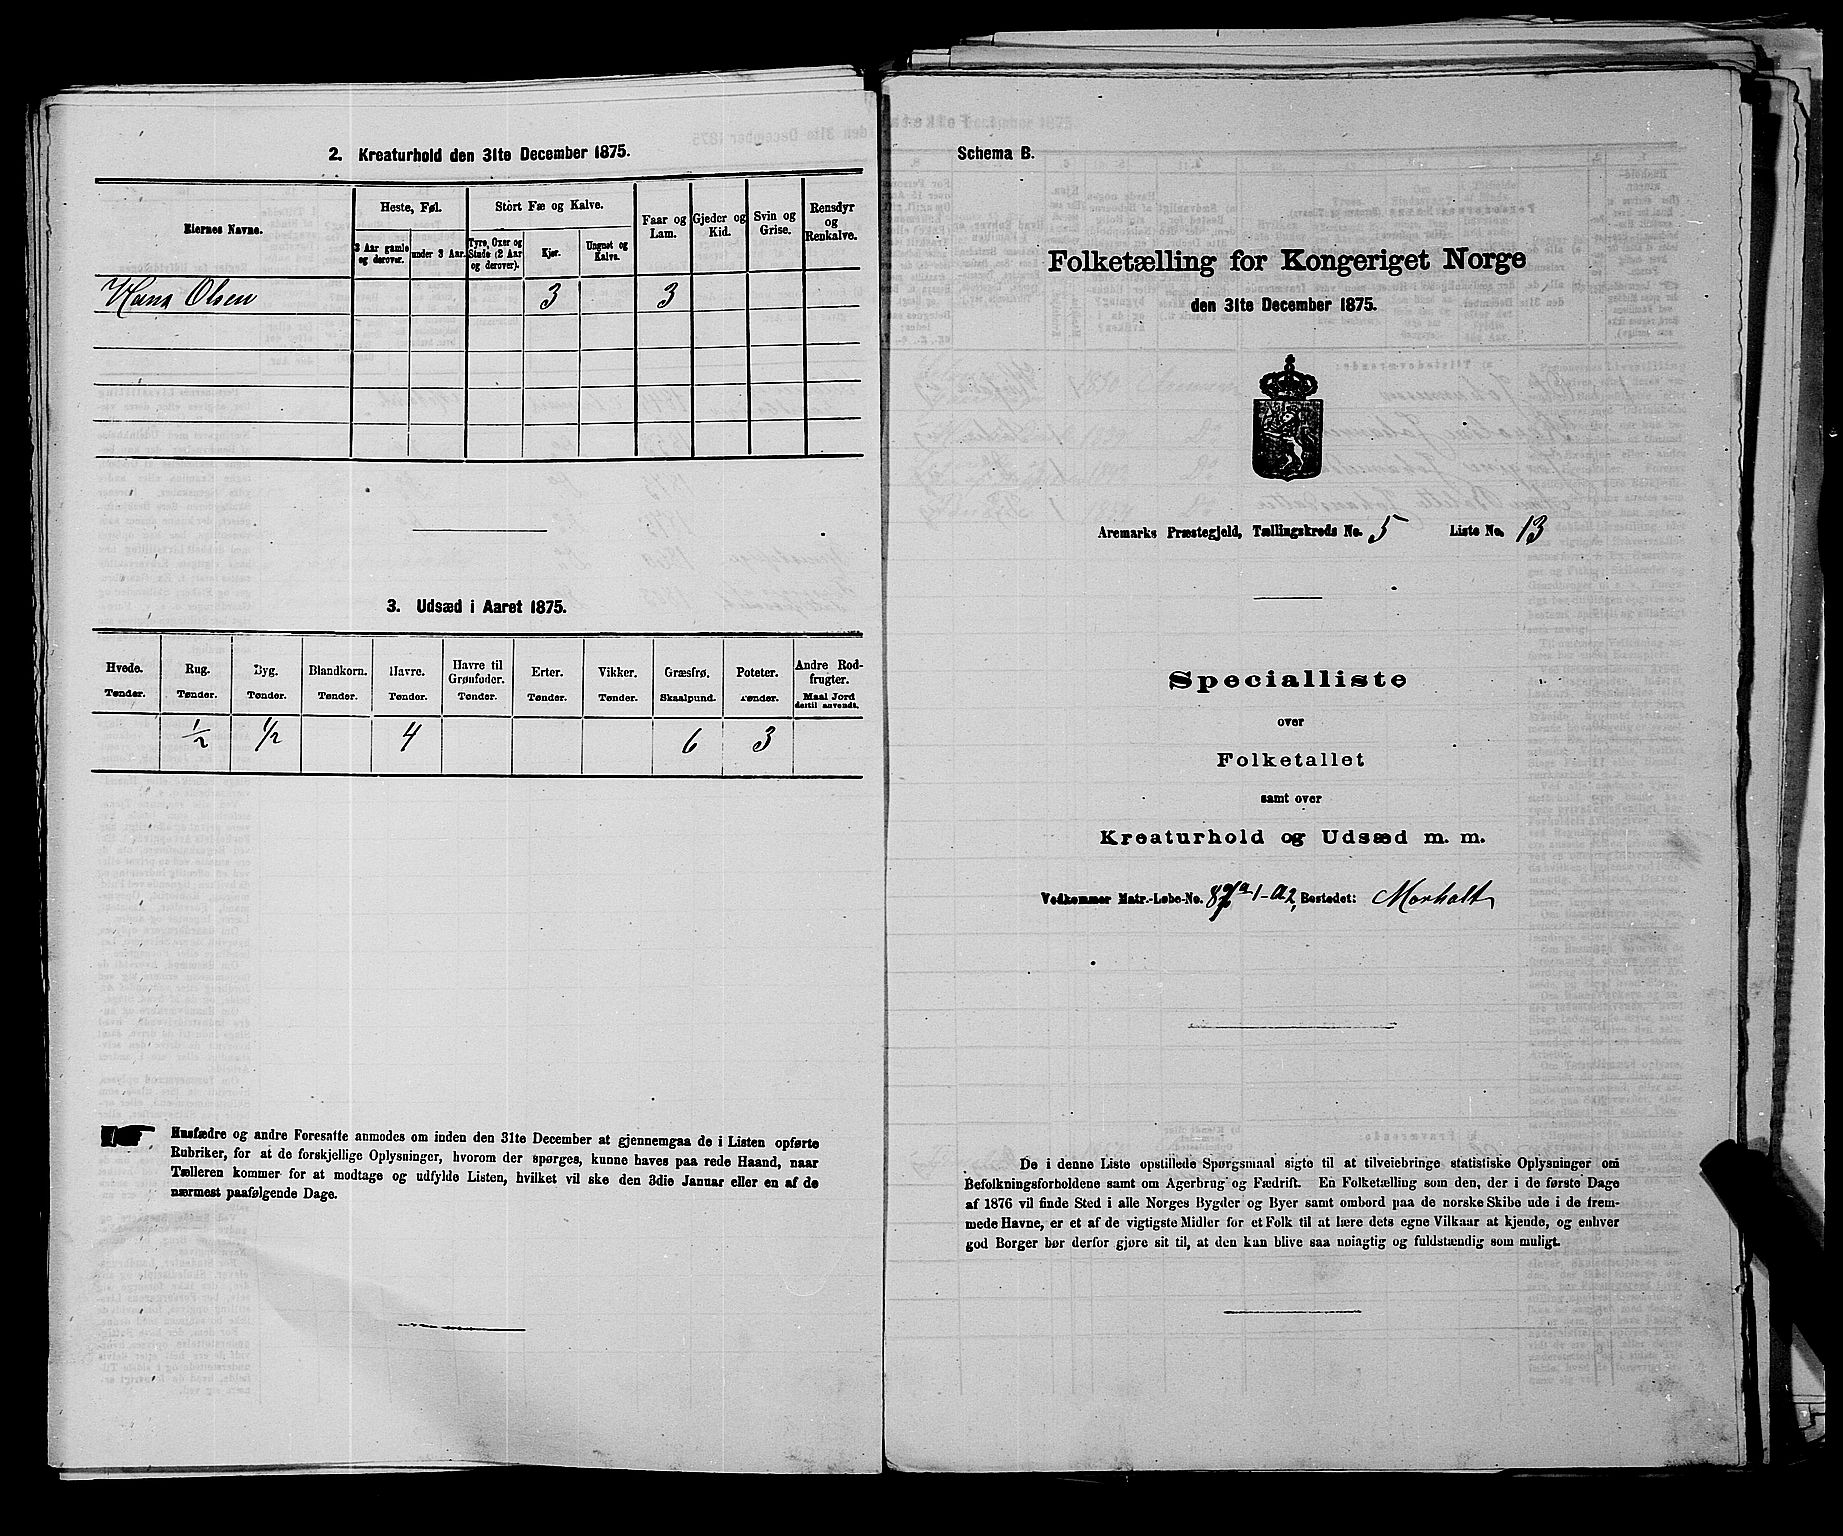 2. Kreaturhold den 31te December 1875.
Eiernes Navne.
Heste, Føl.
3 Aar gamle og derover.
under 3 Aar.
Stort Fæ og Kalve.
Tyre, Oxer og Stude (2 Aar og derover).
Kjør.
Ungnøt og Kalve.
Faar og Lam.
Gjeder og Kid.
Svin og Grise.
Rensdyr og Renkalve.
Hans Olsen 3 3
3. Udsæd i Aaret 1875.
Hvede. Rug. Byg. Blandkorn. Havre. Havre til Grønfoder. Erter. Vikker. Græsfrø. Poteter. Andre Rodfrugter.
Tønder. Tønder. Tønder. Tønder. Tønder. Tønder. Tønder. Tønder. Skaalpund. Tønder. Maal Jord dertil anvendt.
1/2 1/2 4 6 3
Husfædre og andre Foresatte anmodes om inden den 31te December at gjennemgaa de i Listen opførte
Rubriker, for at de forskjellige Oplysninger, hvorom der spørges, kunne haves paa rede Haand, naar
Tælleren kommer for at modtage og udfylde Listen, hvilket vil ske den 3die Januar eller en af de
nærmest paafølgende Dage.
Schema B.
Folketælling for Kongeriget Norge
den 31te December 1875.
Aremarks Præstegjeld, Tællingskreds No. 5 Liste No. 13
Specialliste
over
Folketallet
samt over
Kreaturhold og Udsæd m. m.
Vedkommer Matr.-Løbe-No. 1-a2, Bostedet: Morholt
De i denne Liste opstillede Spørgsmaal sigte til at tilveiebringe statistiske Oplysninger om
Befolkningsforholdene samt om Agerbrug og Fædrift. En Folketælling som den, der i de første Dage
af 1876 vil finde Sted i alle Norges Bygder og Byer samt ombord paa de norske Skibe ude i de frem-
mede Havne, er et af de vigtigste Midler for et Folk til at lære dets egne Vilkaar at kjende, og enhver
god Borger bør derfor gjøre sit til, at den kan blive saa nøiagtig og fuldstændig som muligt.